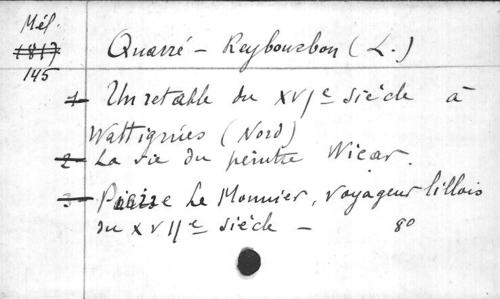 Mél.
1817
145
Quarré - Reybourbon (L.)
1 Un retable du XVIe siècle à
Wattignies (Nord)
2 La vie du peintre Wicar.
3 Pierre Le Monnier, voyageur lillois
du XVIIe siècle - 8o